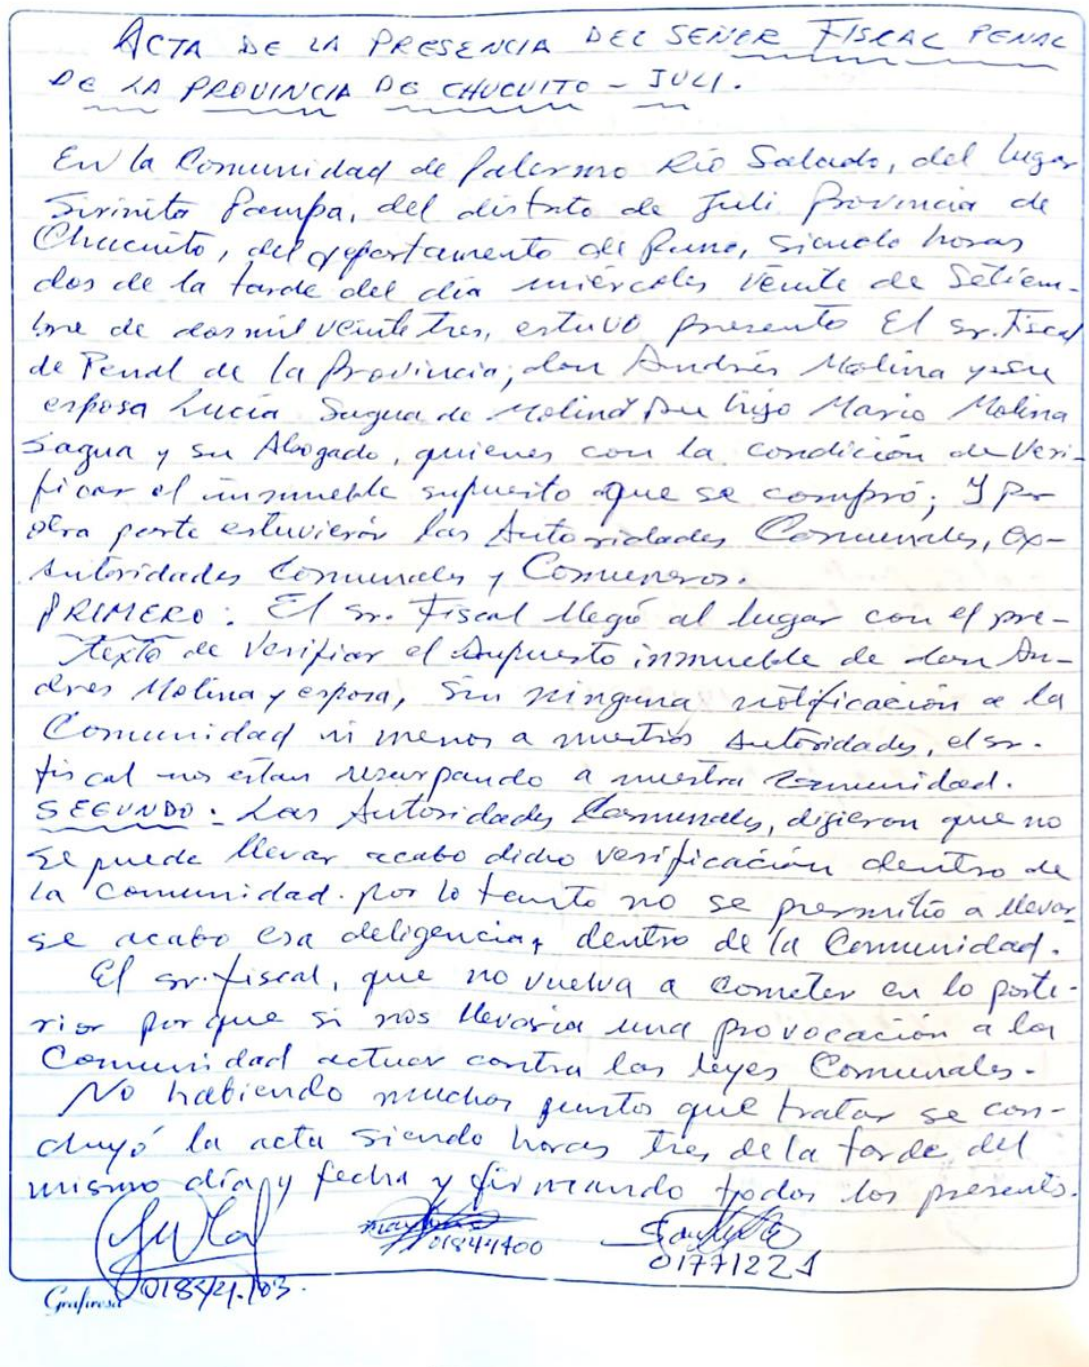 ACTA DE LA PRESENCIA DEL SEÑOR FISCAL PENAL
DE LA PROVINCIA DE CHUCUITO - JULI.
En la Comunidad de Palermo Río Salado, del lugar
Sirinita Pampa, del distrito de Juli Provincia de
Chucuito, del departamento de Puno, siendo horas
dos de la tarde del día miércoles veinte de Setiem-
bre de dosmil veinte tres, estuvo presente El sr. Fiscal
de Penal de la Provincia, don Andrés Molina y su
esposa Lucía Sagua de Molina su hijo Mario Molina
Sagua y su Abogado, quienes con la condición de Veri-
ficar el inmueble supuesto que se compró; Y por
otra parte estuvierón las Autoridades Comunales, ex-
autoridades Comunales y Comuneros.
PRIMERO: El sr. Fiscal llegó al lugar con el pre-
texto de Verifiar el supuesto inmueble de don An-
dres Molina y esposa, sin ninguna notificación a la
Comunidad ni menos a nuestros autoridades, el sr.
fiscal nos estan usurpando a nuestra comunidad.
SEGUNDO: Las Autoridades Comunales, digieron que no
se puede llevar acabo dicho verificación dentro de
la comunidad. por lo tanto no se permitio a llevar
se acabo esa deligencia, dentro de la Comunidad.
El sr. fiscal, que no vuelva a cometer en lo poste-
rior por que si nos llevaria una provocación a la
Comunidad actuar contra las leyes Comunales.
No habiendo muchos puntos que tratar se con-
cluyó la acta siendo horas tres de la tarde del
mismo día y fecha y firmando todos los presents.
01844400
01771221
Grafiresa